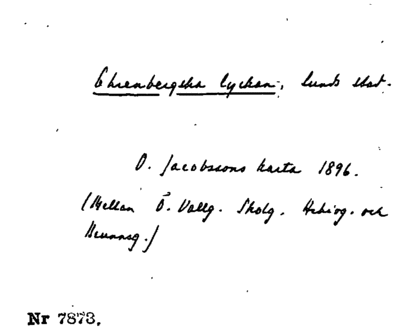 Ehrenbergska lyckan, Lunds stad.
O. Jacobssons karta 1896.
(Mellan Ö. Vallg. Skolg. Hebsog. och
Brunnsg.)
Nr 7873.